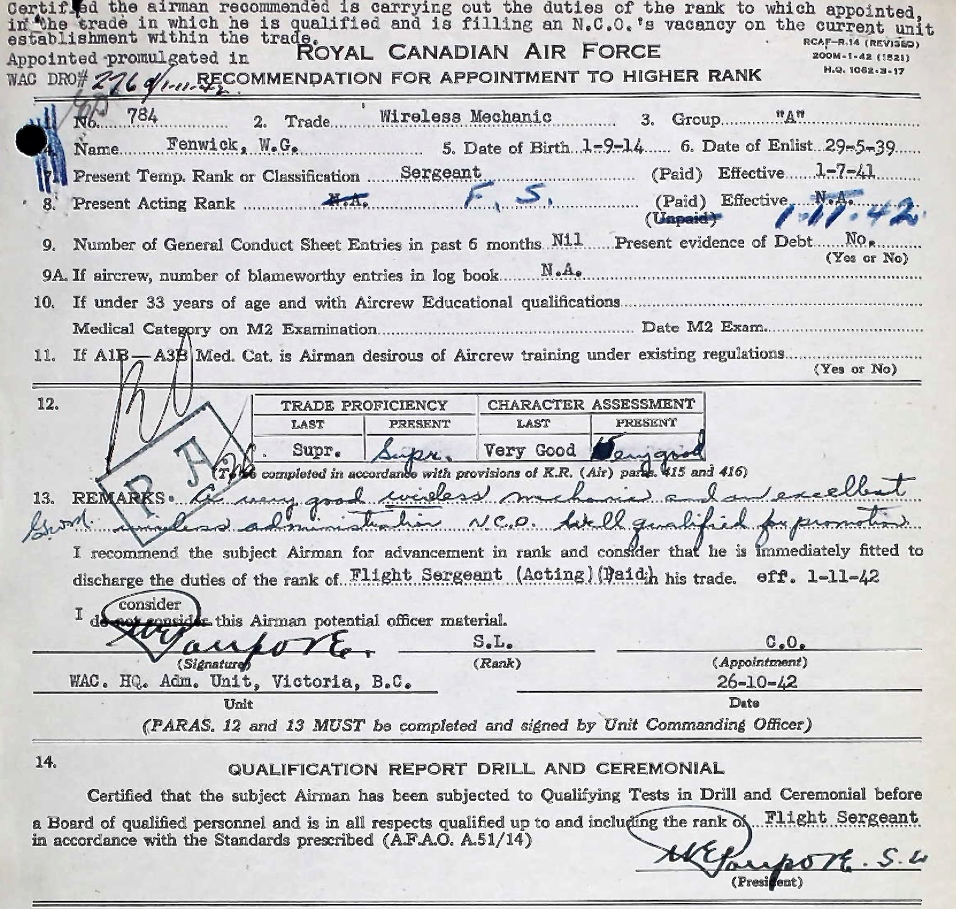 Certified the airman recommended is carrying out the duties of the rank to which appointed,
in the trade in which he is qualified and is filling an N.C.O.'s vacancy on the current unit
establishment within the trade.
ROYAL CANADIAN AIR FORCE
RCAF-R.14 (REVISED)
200M-1-42 (1821)
H.Q. 1062-3-17
Appointed promulgated in
WAC DRO# 276 d/1-11-42 RECOMMENDATION FOR APPOINTMENT TO HIGHER RANK
No. 784 2. Trade Wireless Mechanic 3. Group "A"
4. Name Fenwick, W.G. 5. Date of Birth 1-9-14 6. Date of Enlist 29-5-39
7. Present Temp. Rank or Classification Sergeant (Paid) Effective 1-7-41
8. Present Acting Rank N.A. F. S. (Paid) Effective N.A. 1.11.42
(Unpaid)
9. Number of General Conduct Sheet Entries in past 6 months Nil Present evidence of Debt No.
(Yes or No)
9A. If aircrew, number of blameworthy entries in log book N.A.
10. If under 33 years of age and with Aircrew Educational qualifications
Medical Category on M2 Examination Date M2 Exam.
11. If A1B—A3B Med. Cat. is Airman desirous of Aircrew training under existing regulations
(Yes or No)
12.
TRADE PROFICIENCY CHARACTER ASSESSMENT
LAST PRESENT LAST PRESENT
Supr. Supr. Very Good Very good
P A
(To be completed in accordance with provisions of K.R. (Air) paras. 415 and 416)
13. REMARKS. A very good wireless mechanic and an excellent
wireless administration N.C.O. Well qualified for promotion
I recommend the subject Airman for advancement in rank and consider that he is immediately fitted to
discharge the duties of the rank of Flight Sergeant (Acting)(Paid) in his trade. eff. 1-11-42
I consider
do not consider this Airman potential officer material.
S.L. C.O.
(Signature) (Rank) (Appointment)
WAC. HQ. Adm. Unit, Victoria, B.C. 26-10-42
Unit Date
(PARAS. 12 and 13 MUST be completed and signed by Unit Commanding Officer)
14.
QUALIFICATION REPORT DRILL AND CEREMONIAL
Certified that the subject Airman has been subjected to Qualifying Tests in Drill and Ceremonial before
a Board of qualified personnel and is in all respects qualified up to and including the rank of Flight Sergeant
in accordance with the Standards prescribed (A.F.A.O. A.51/14)
(President)